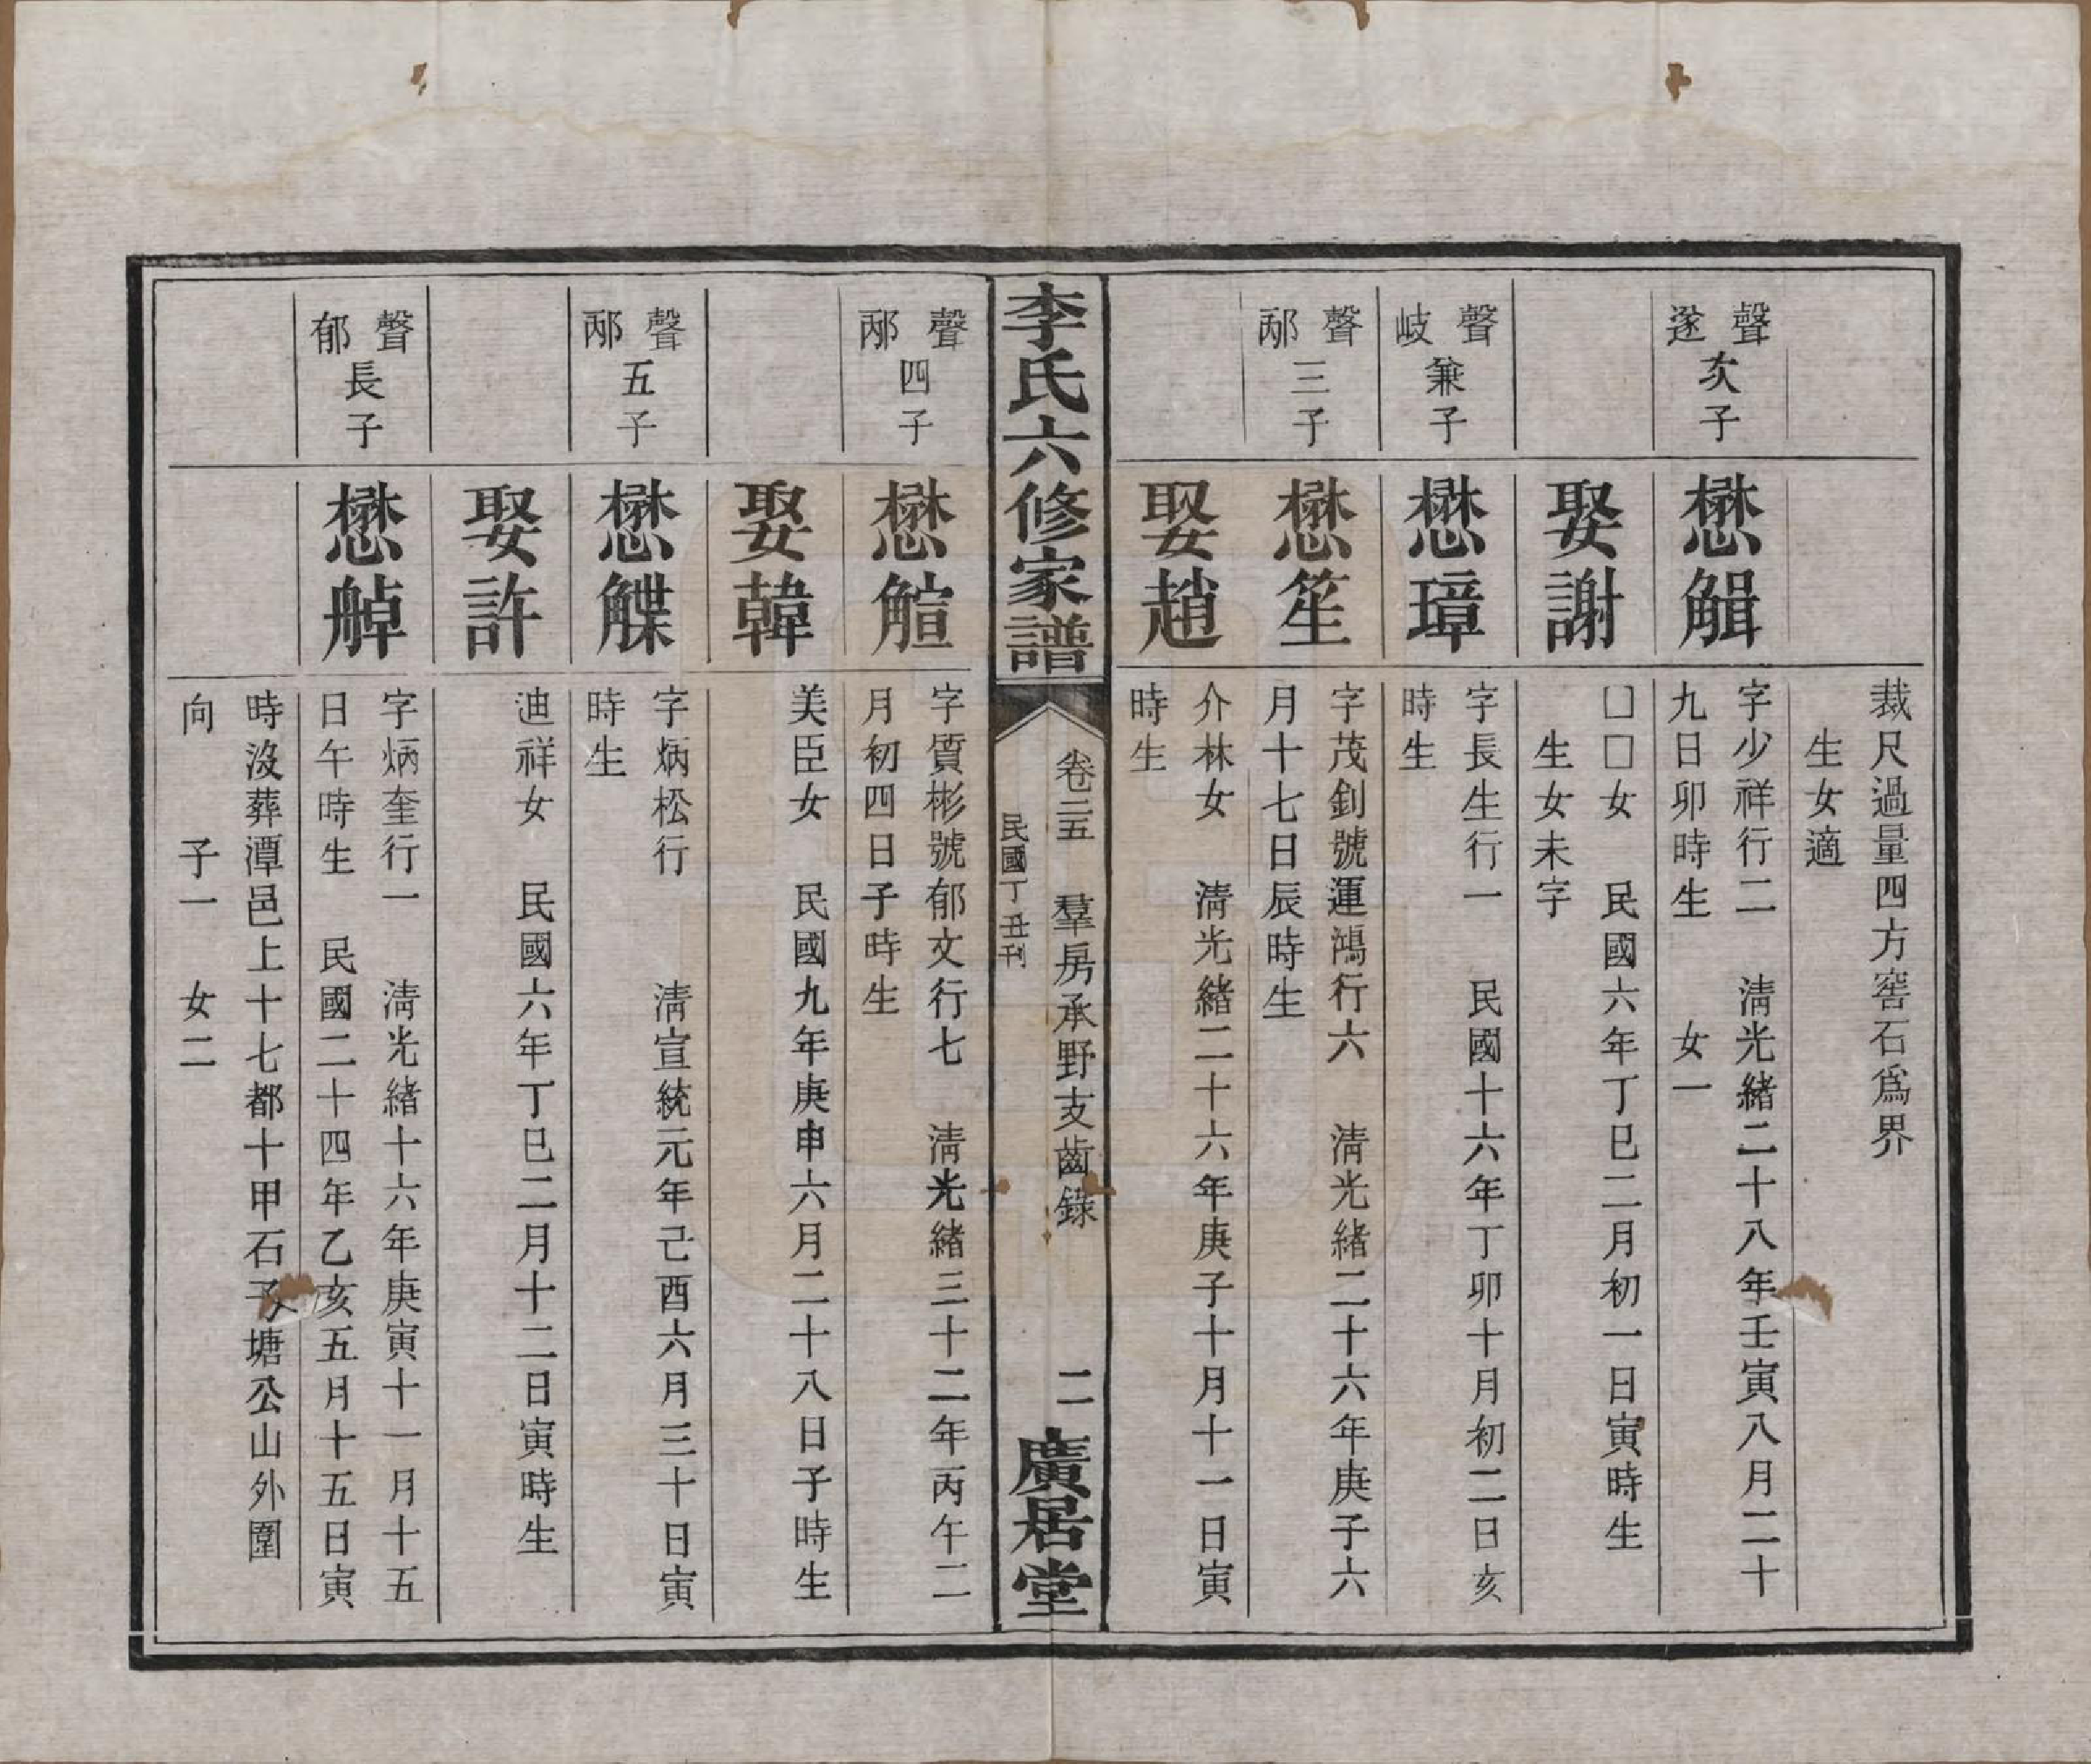 裁尺過量四方窖石爲界
生女適
聲遂次子
懋艒
字少祥行二　清光緒二十八年壬寅八月二十
九日卯時生　女一
娶謝
□□女　民國六年丁巳二月初一日寅時生
生女未字
聲岐兼子
懋璋
字長生行一　民國十六年丁卯十月初二日亥
時生
聲邴三子
懋笙
字茂釗號運鴻行六　清光緒二十六年庚子六
月十七日辰時生
娶趙
介林女　清光緒二十六年庚子十月十一日寅
時生
李氏六修家譜
卷二五　羣房承野支齒錄
民國丁丑刊
二
廣居堂
聲邴四子
懋
字質彬號郁文行七　清光緒三十二年丙午二
月初四日子時生
娶韓
美臣女　民國九年庚申六月二十八日子時生
聲邴五子
懋
字炳松行　清宣統元年己酉六月三十日寅
時生
娶許
迪祥女　民國六年丁巳二月十二日寅時生
聲郁長子
懋
字炳奎行一　清光緒十六年庚寅十一月十五
日午時生　民國二十四年乙亥五月十五日寅
時沒葬潭邑上十七都十甲石子塘公山外圍
向　子一　女二